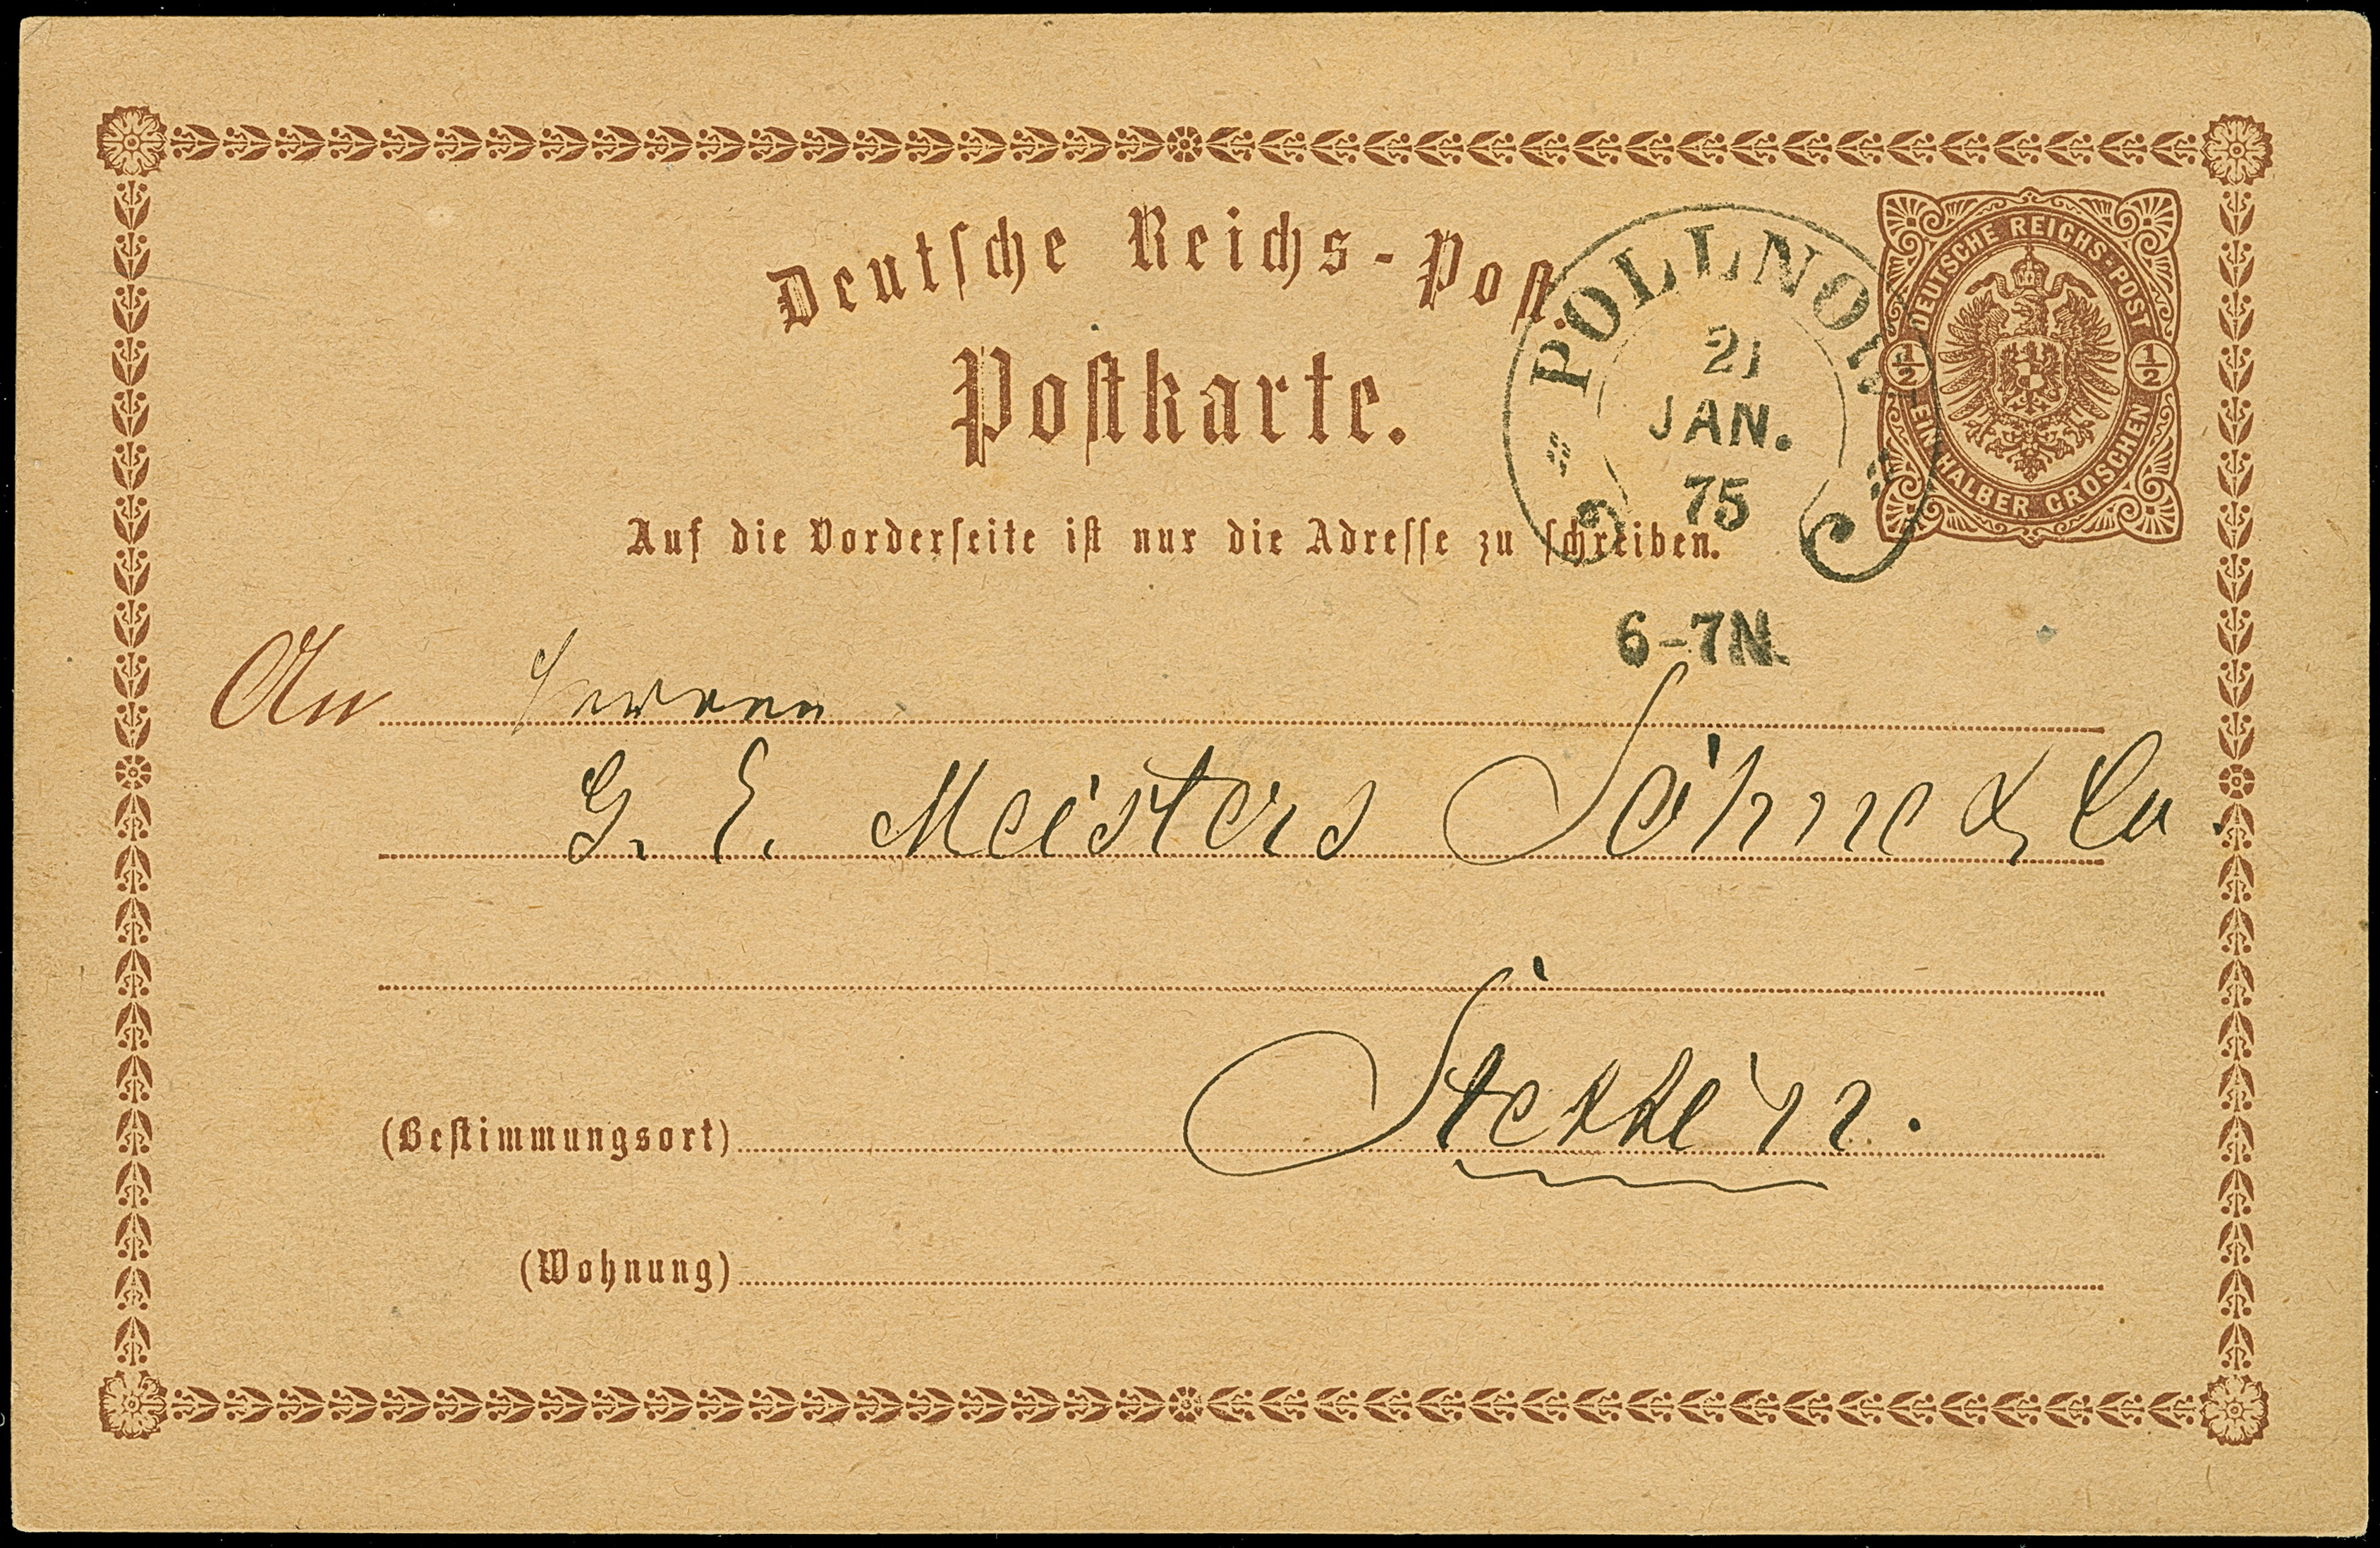 Deutsche Reichs-Post.
Postkarte.
Auf die Vorderseite ist nur die Adresse zu schreiben.
POLLNOW
21
JAN.
75
6-7N.
DEUTSCHE REICHS-POST
1/2 1/2
EIN HALBER GROSCHEN
An Herren
G. E. Meisters Söhne & Co.
(Bestimmungsort) Stettin.
(Wohnung)